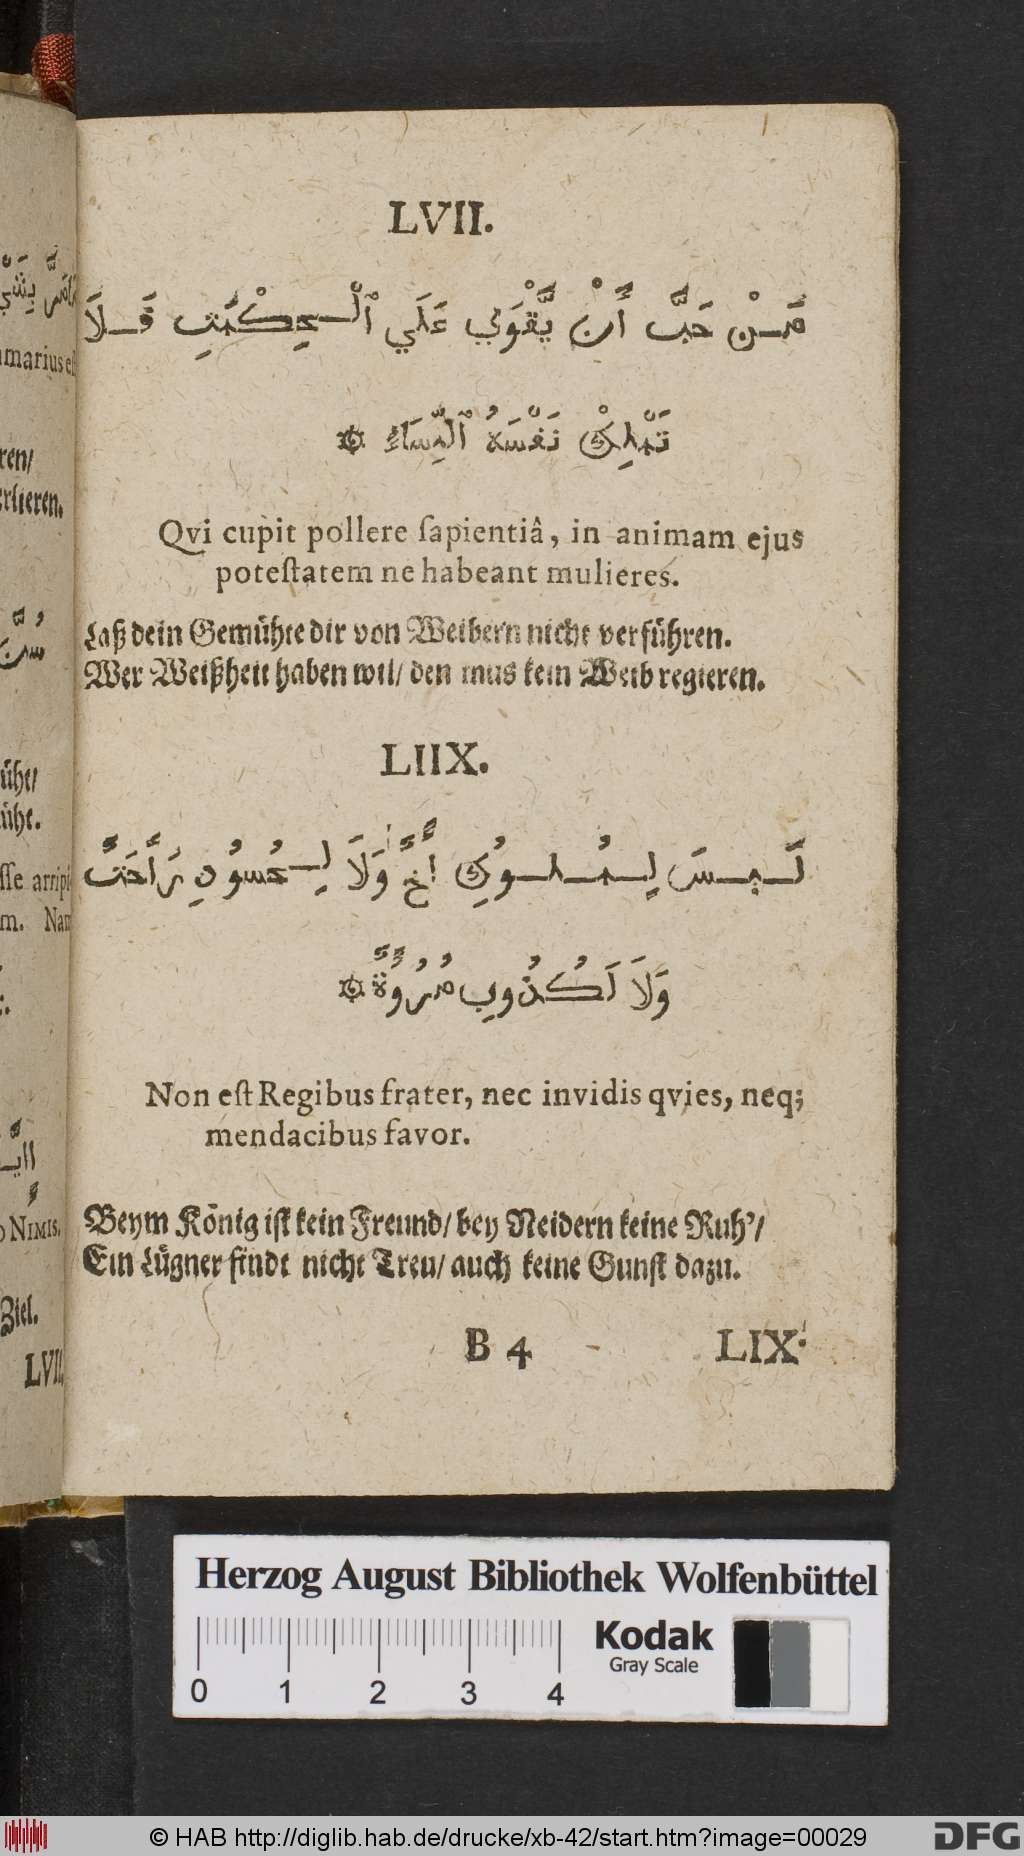 LVII.
مَنْ حَبَّ أَنْ يَّقْوَي عَلَي ٱلْحِكْمَتِ فَلاَ
تَمْلِكْ نَفْسَهُ ٱلنِّسَاءُ
Qvi cupit pollere ſapientiâ, in animam ejus
poteſtatem ne habeant mulieres.
Laß dein Gemühte dir von Weibern nicht verführen.
Wer Weißheit haben wil/ den mus kein Weib regieren.
LIIX.
لَيسَ لِمُلُوكِ أَخٌ وَلاَ لِحُسُودِ رَاحَتٌ
وَلاَ لَكُذُوبِ مُرُوَةٌ
Non eſt Regibus frater, nec invidis qvies, neq;
mendacibus favor.
Beym König iſt kein Freund/ bey Neidern keine Ruh'/
Ein Lügner findt nicht Treu/ auch keine Gunſt dazu.
B 4
LIX.
amarius eſt
ren/
erlieren.
ühe.
ſſe arripi
m. Nam
NIMIS.
Ziel.
LVII.
Herzog August Bibliothek Wolfenbüttel
Kodak
Gray Scale
0 1 2 3 4
© HAB http://diglib.hab.de/drucke/xb-42/start.htm?image=00029
DFG